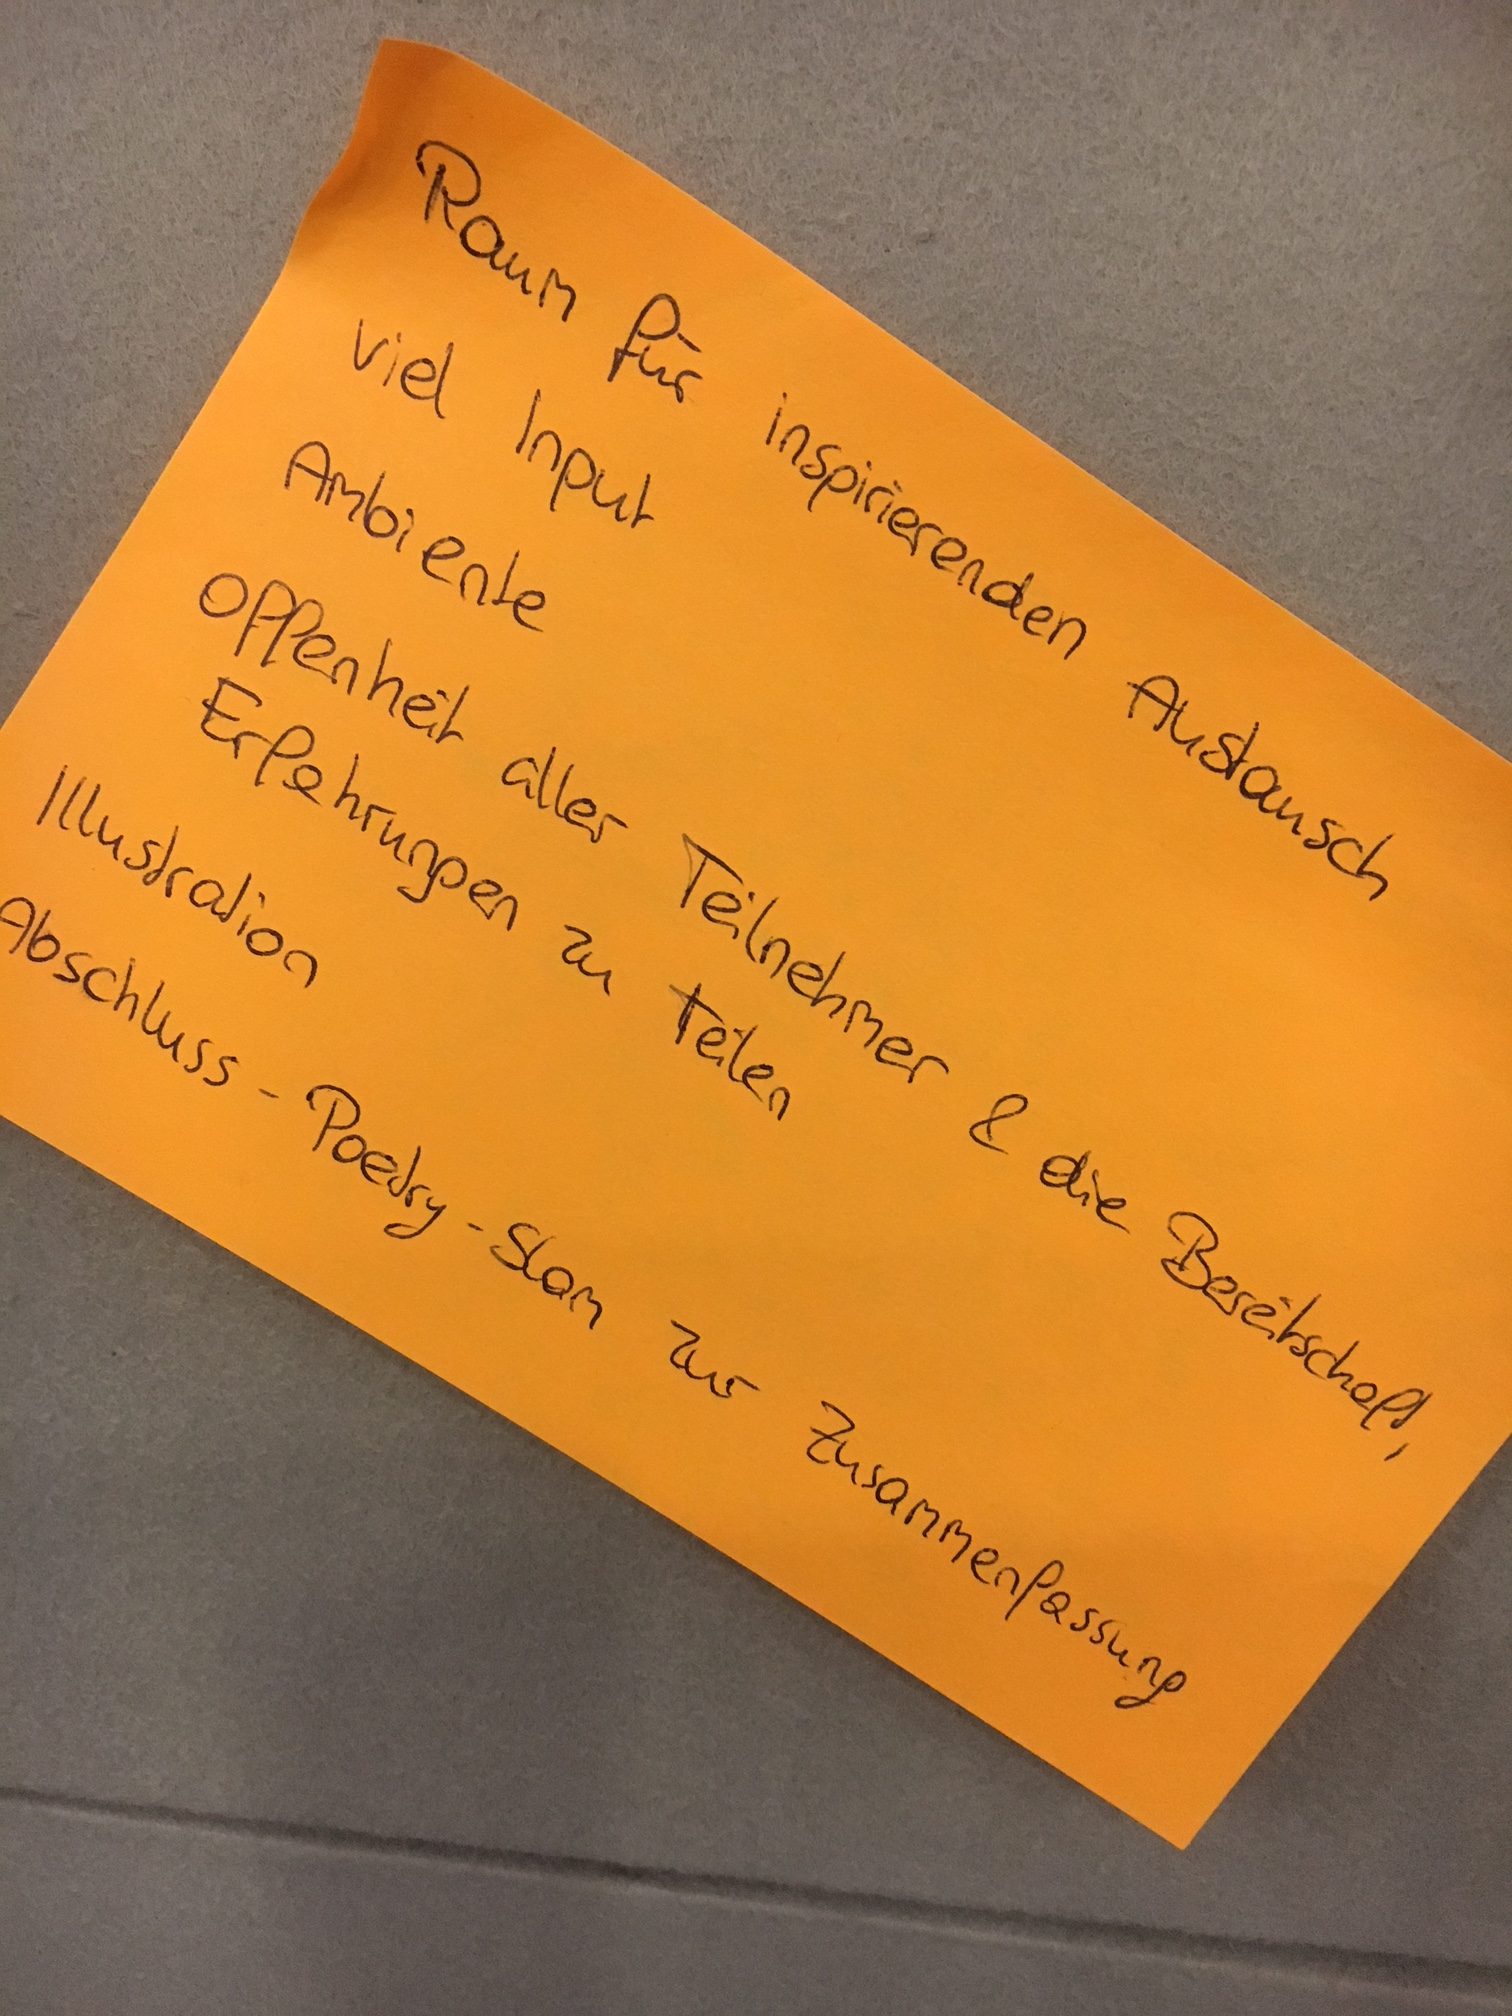 Raum für inspirierenden Austausch
viel Input
Ambiente
Offenheit aller Teilnehmer & die Bereitschaft,
Erfahrungen zu Teilen
Illustration
Abschluss-Poetry-Slam zur Zusammenfassung